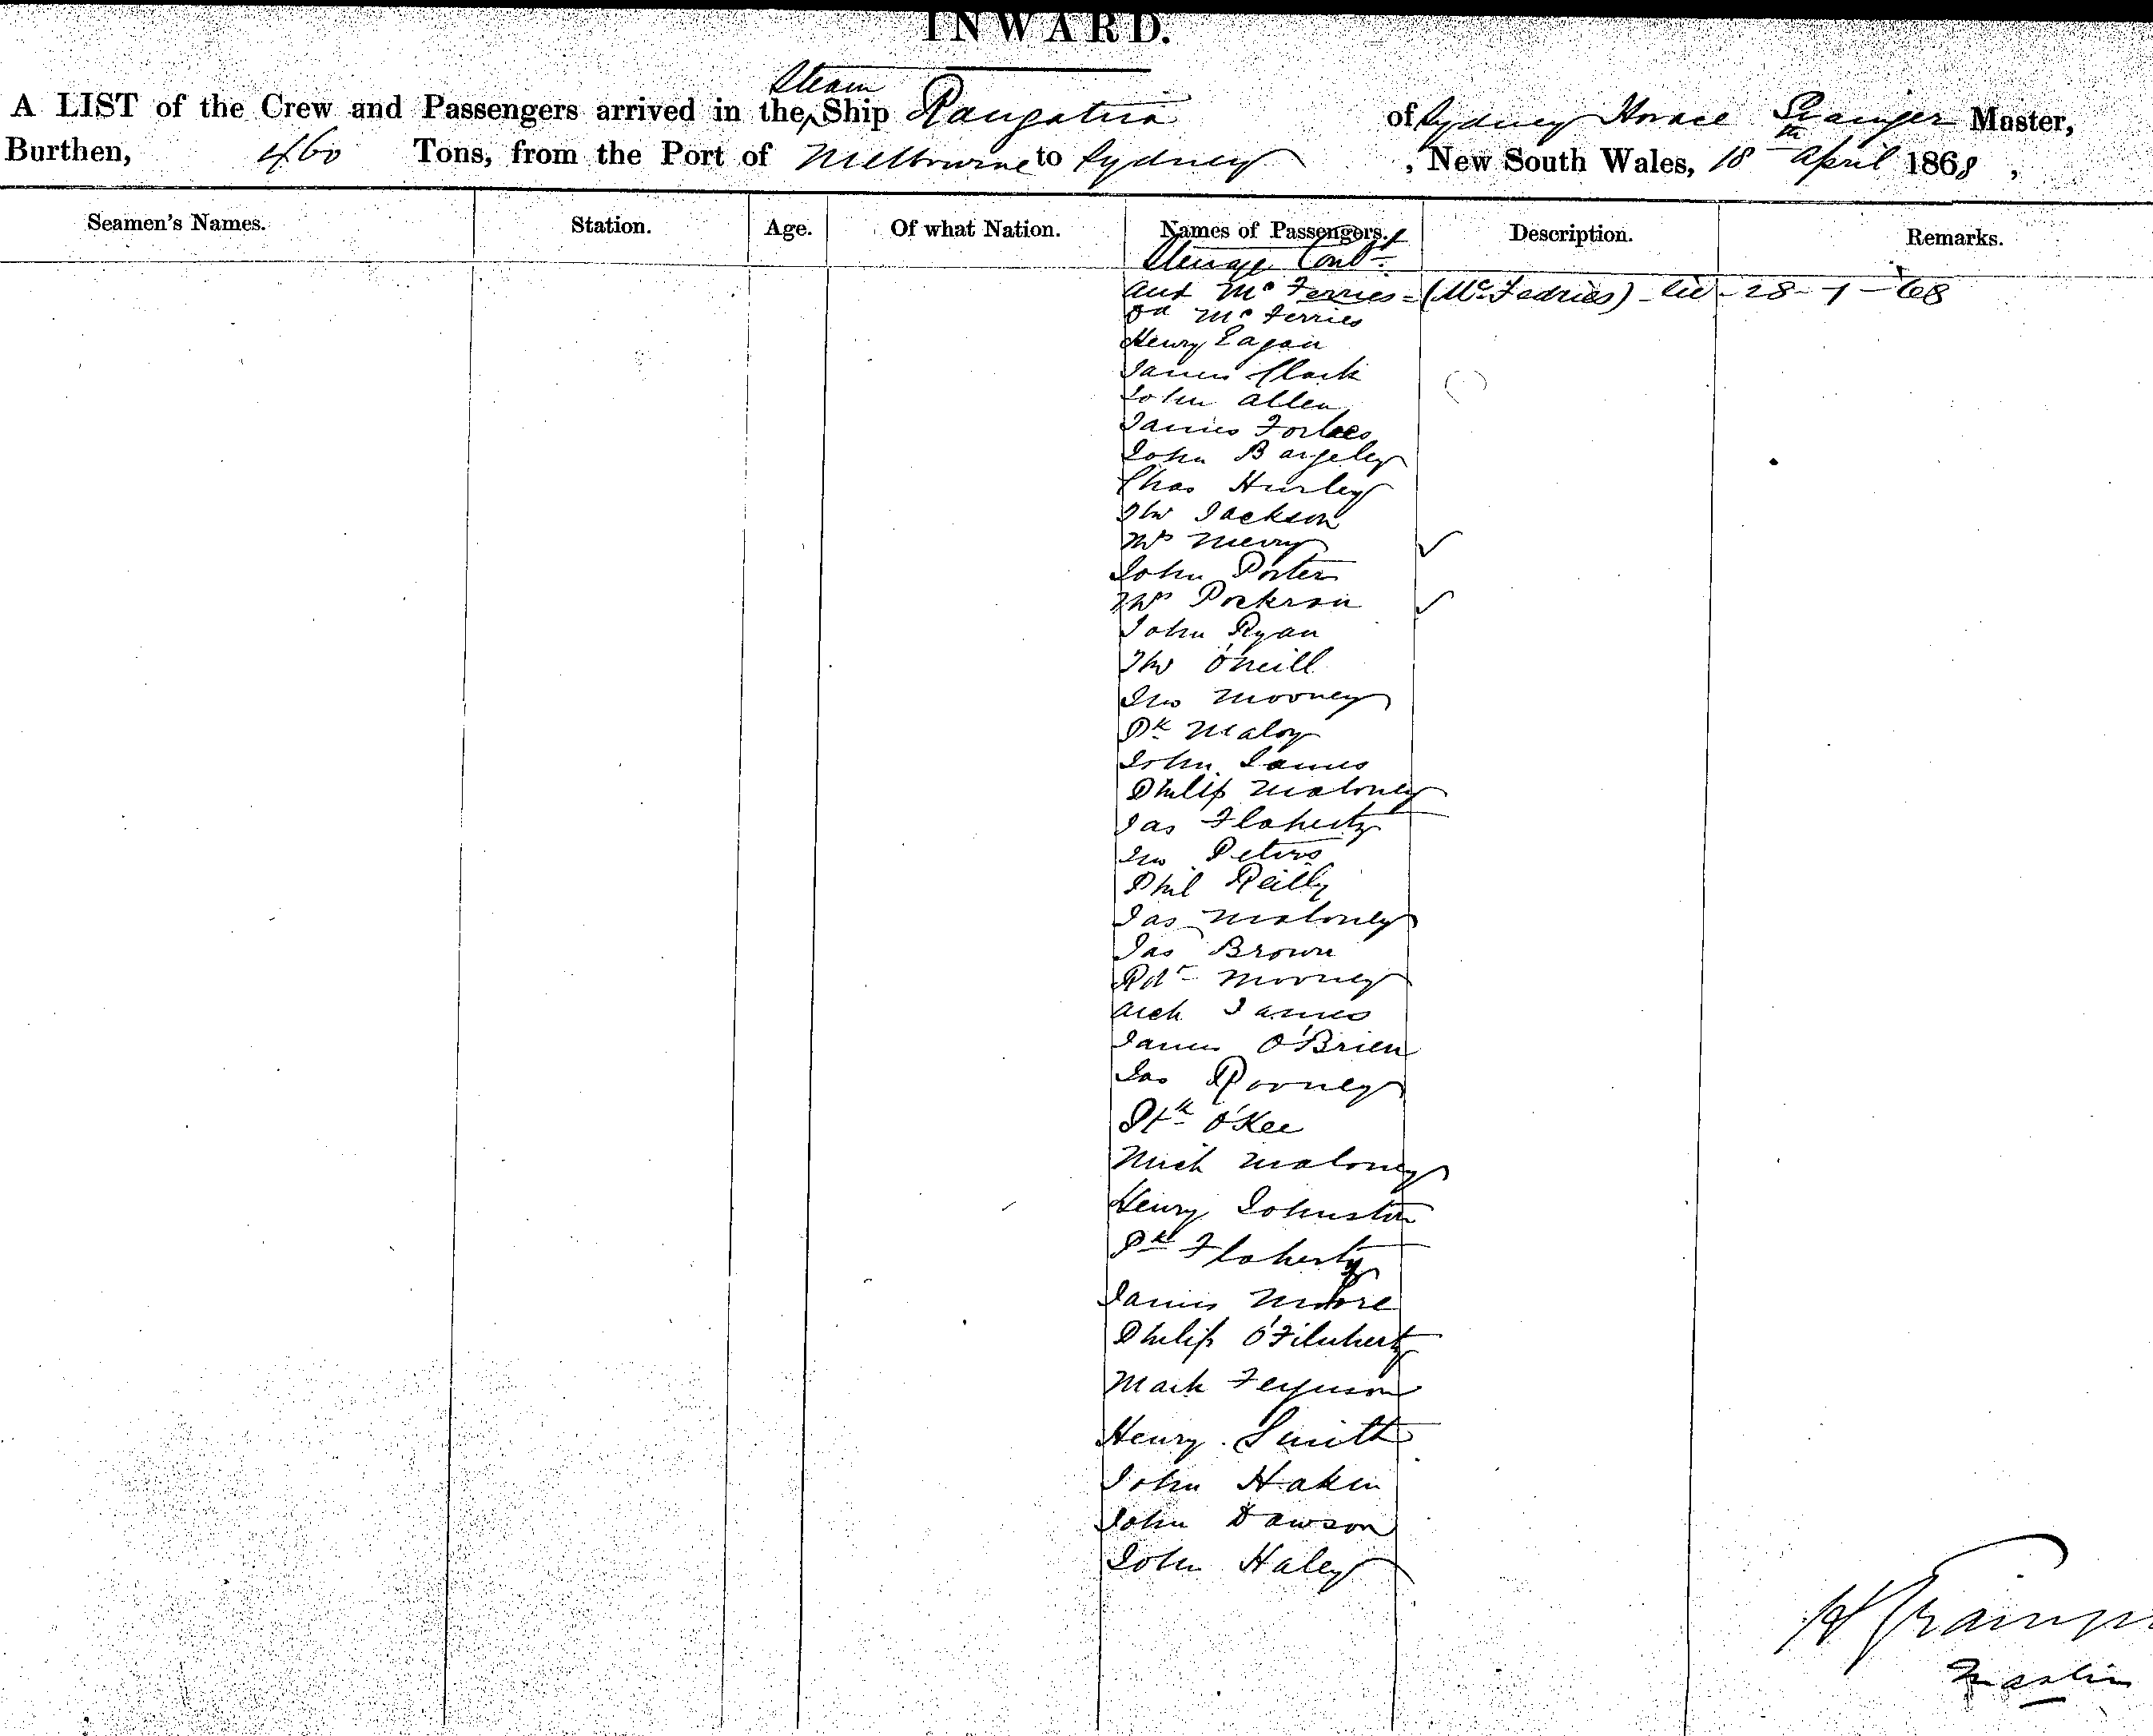 INWARD.
A LIST of the Crew and Passengers arrived in the Steam Ship Rangatira of Sydney Horace Master,
Burthen, 460 Tons, from the Port of Melbourne to Sydney, New South Wales, 18th April 1868,
Seamen's Names. Station. Age. Of what Nation. Names of Passengers. Description. Remarks.
Steerage Cont.
Ant McFerries = (McFedries) - 28-1-68
McFerries
Henry Eagan
James Clark
John Allen
James Forbes
John Bargeley
Chas Hurley
Jackson
Merry
John Porter
John Ryan
O'Neill
Jno Mooney
Pk Maloy
John James
Philip Maloney
Jas Flaherty
Jno Peters
Phil Reilly
Jas Maloney
Jas Brown
Robt Mooney
Arch James
James O'Brien
Jas Rooney
Ptk O'Kee
Mich Maloney
Henry Johnston
Pk Flaherty
James Moore
Philip
Mark Ferguson
Henry Smith
John Haken
John Dawson
John Haley
Master